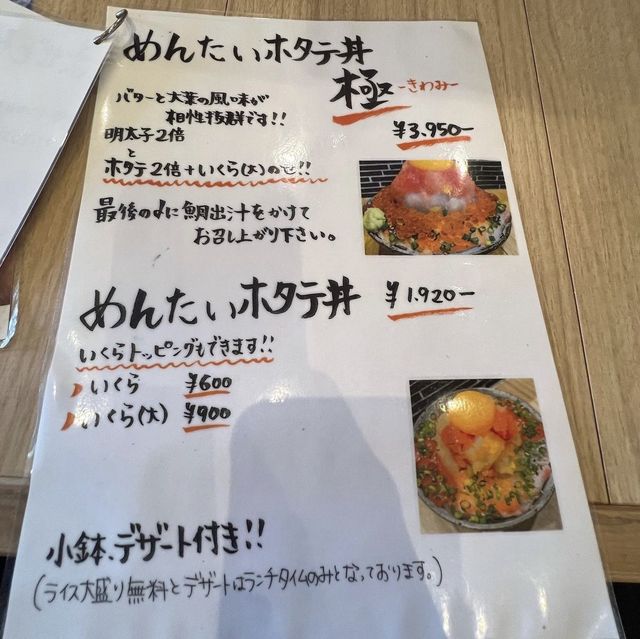 めんたいホタテ丼
極 -きわみ-
バターと大葉の風味が
相性抜群です!!
¥3,950-
明太子2倍
と
ホタテ2倍+いくら(大)のせ!!
最後の〆に鯛出汁をかけて
お召し上がり下さい。
めんたいホタテ丼 ¥1,920-
いくらトッピングもできます!!
いくら ¥600
いくら(大) ¥900
小鉢、デザート付き!!
(ライス大盛り無料とデザートはランチタイムのみとなっております。)